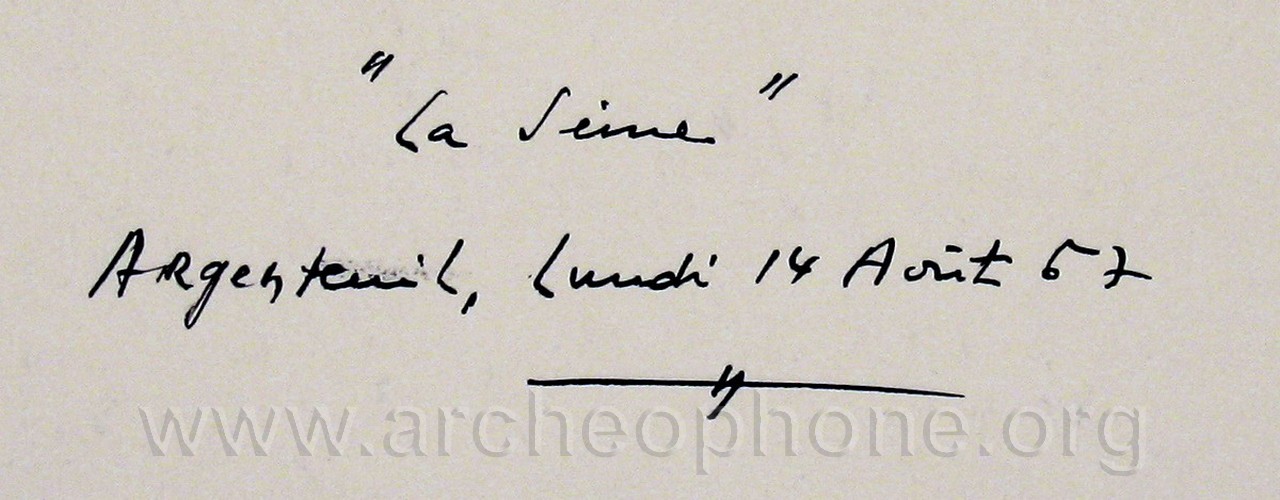 "La Seine"
Argenteuil, lundi 14 Août 67
www.archeophone.org